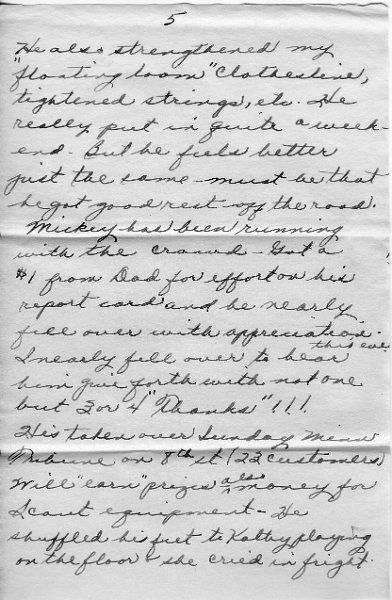 5
He also strengthened my
"floating boom" Clothesline,
tightened strings, etc. He
really put in quite a week-
end. But he feels better
just the same - must be that
he got good rest - off the road.
Mickey has been running
with the crowd - Got a
$1 from Dad for effort on his
report card and he nearly
fell over with appreciation.
this eve
I nearly fell over to hear
him give forth with not one
but 3 or 4 "Thanks"!!!
His taken over Sunday Minn
Tribune on 8th st (22 customers)
Will "earn" prizes also money for
Scout equipment - He
shuffled his feet to Kathy playing
on the floor & she cried in fright.